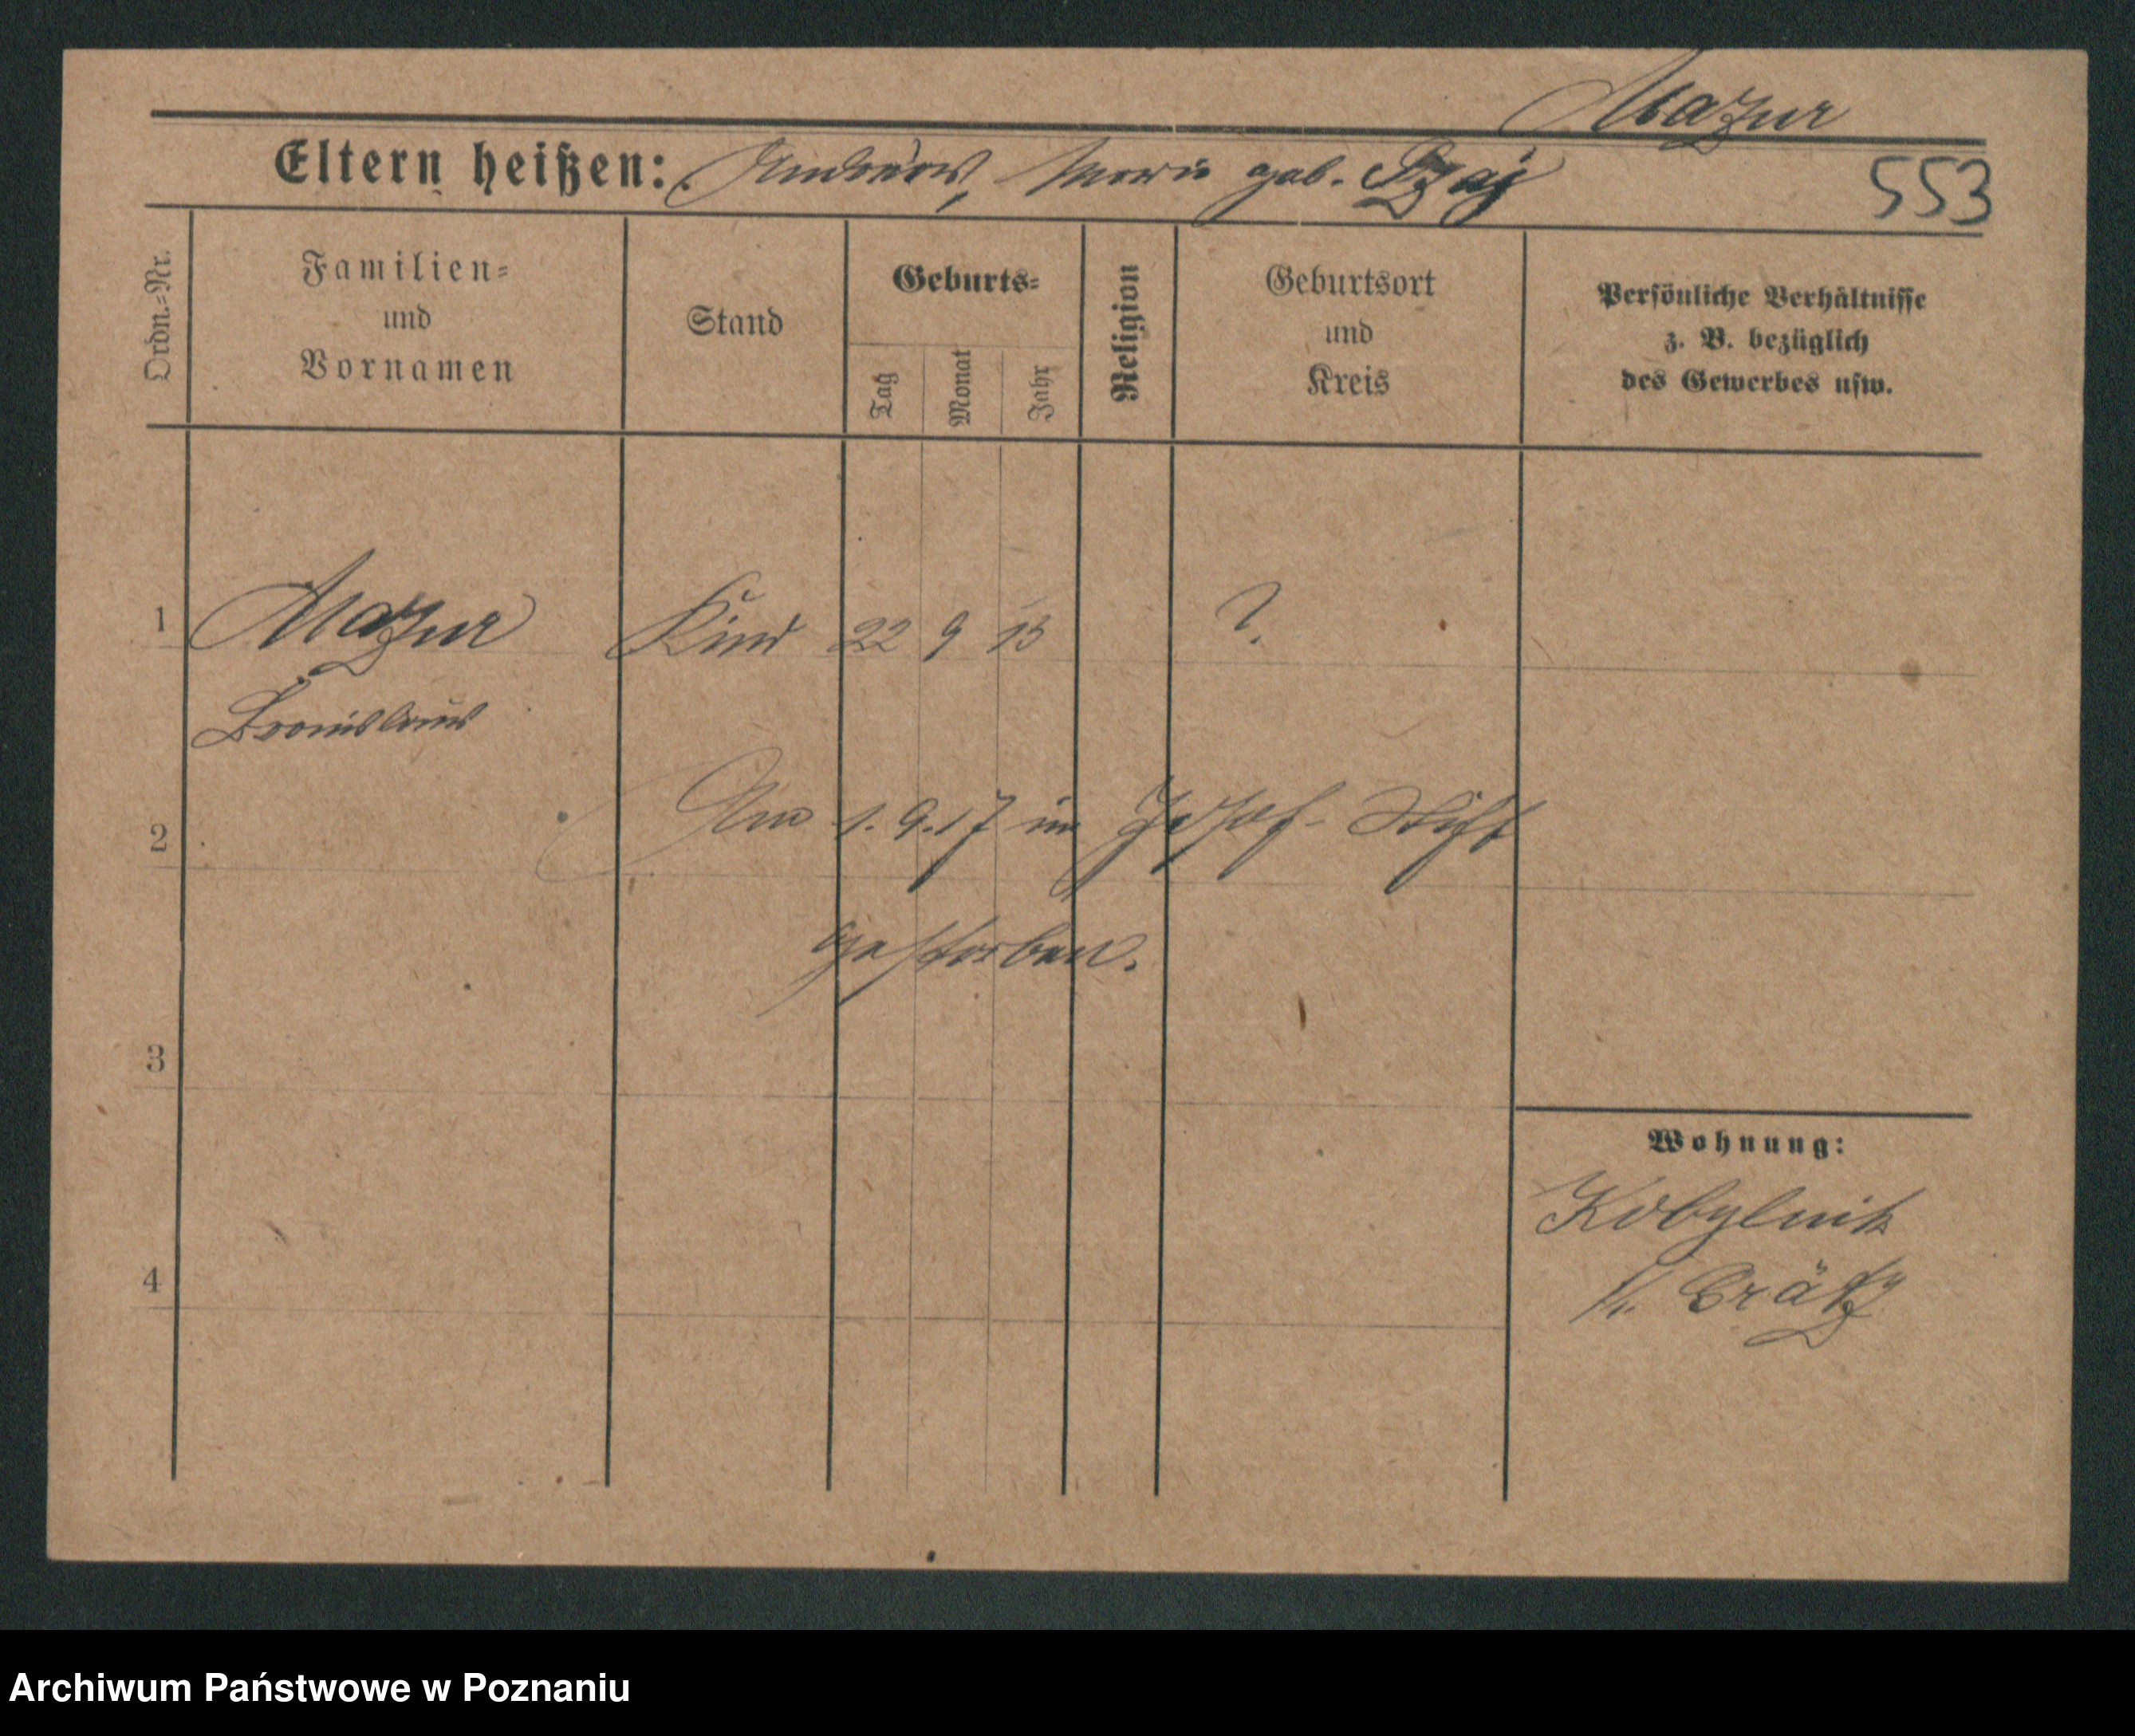 Mazur
Eltern heißen: Andreas, Marie geb. Bzaj
553
Ordn.-Nr.
Familien-
und
Vornamen
Stand
Geburts-
Tag
Monat
Jahr
Religion
Geburtsort
und
Kreis
Persönliche Verhältnisse
z. B. bezüglich
des Gewerbes usw.
1 Mazur Kind 22 9 13 ?
Bronislaus
2 Am 1.9.17 im Josef-Stift
gestorben.
3
Wohnung:
Kobylnik
4
Grätz
Archiwum Państwowe w Poznaniu